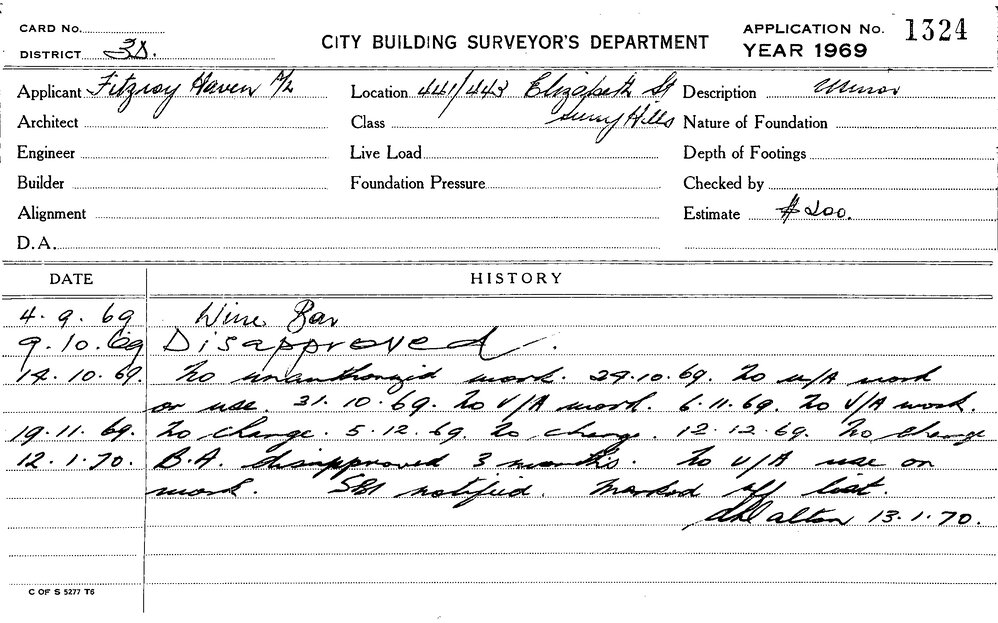 CARD No.
APPLICATION No. 1324
DISTRICT 3D.
CITY BUILDING SURVEYOR'S DEPARTMENT
YEAR 1969
Applicant Fitzroy Haven P/L Location 441/443 Elizabeth St Description Minor
Architect Class Surry Hills Nature of Foundation
Engineer Live Load Depth of Footings
Builder Foundation Pressure Checked by
Alignment Estimate $200.
D.A.
DATE HISTORY
4.9.69 Wine Bar
9.10.69 Disapproved.
14.10.69. No unauthorized work. 24.10.69. No u/A work
or use. 31.10.69. No V/A work. 6.11.69. No V/A work.
19.11.69. No change. 5.12.69. No change. 12.12.69. No change
12.1.70. B.A. disapproved 3 months. No u/A use or
work. SBI notified. Marked off list.
Dalton 13.1.70.
C OF S 5277 T6